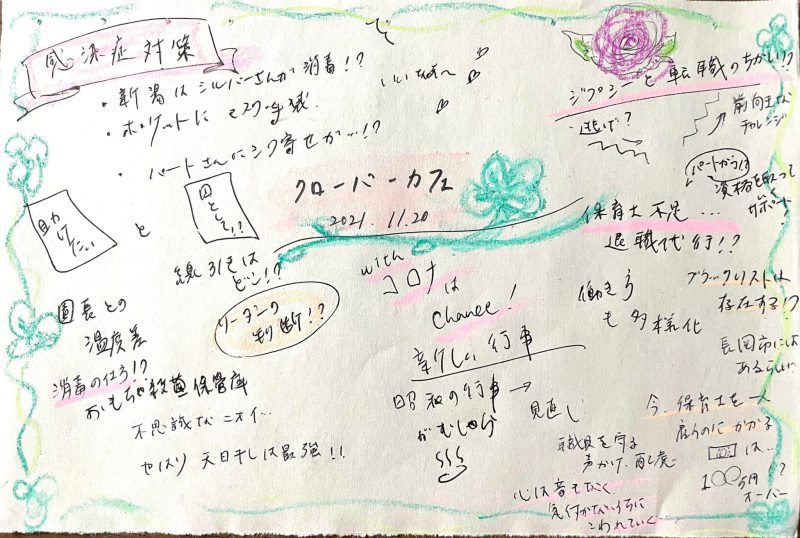 感染症対策
・新潟はシルバーさんが消毒!?
いいなぁ〜
・ポケットにマスク
・パートさんにシワ寄せが…!?
助けたい
と
として!!
線引きは
ドコ!?
リーダーの
判断!?
園長との
温度差
消毒の仕方!?
おもちゃ殺菌保管庫
不思議なニオイ…
やはり 天日干しは最強!!
クローバーカフェ
2021. 11.20
with
コロナ
は
Chance!
新しい行事
昭和の行事→
見直し
がむしゃら
職員を守る
声かけ、配慮
心は音もなく
気付かないうちに
こわれていく
ジプシーと転職のちがい!?
逃げ?
前向きな
チャレンジ
パートからは
資格を取って
サポート!
保育士不足…
退職代行!?
働き方
も多様化
ブラックリストは
存在する!?
長岡市には
あるらしい
今、保育士を一人
雇うのにかかる
は…
100万円!?
オーバー